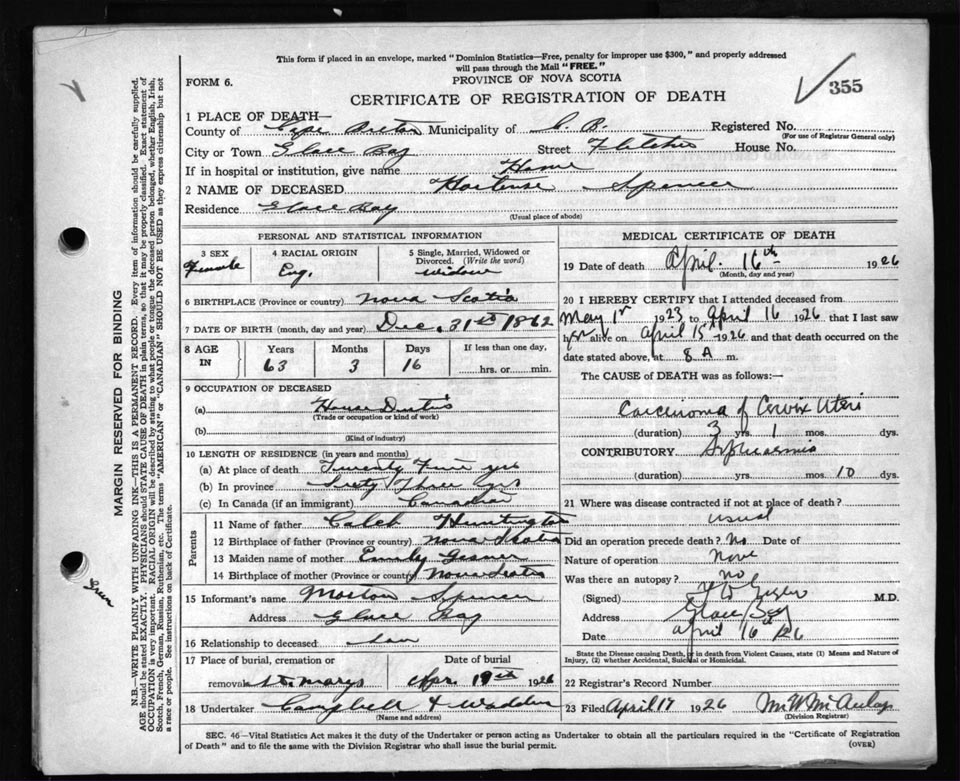 This form if placed in an envelope, marked "Dominion Statistics—Free, penalty for improper use $300," and properly addressed
will pass through the Mail "FREE."
FORM 6.
PROVINCE OF NOVA SCOTIA
355
CERTIFICATE OF REGISTRATION OF DEATH
1 PLACE OF DEATH—
County of Cape Breton Municipality of C. B. Registered No.
(For use of Registrar General only)
City or Town Glace Bay Street House No.
If in hospital or institution, give name Home
2 NAME OF DECEASED Hortense Spencer
Residence Glace Bay
(Usual place of abode)
PERSONAL AND STATISTICAL INFORMATION
3 SEX Female
4 RACIAL ORIGIN Eng.
5 Single, Married, Widowed or Divorced. (Write the word) Widow
6 BIRTHPLACE (Province or country) Nova Scotia
7 DATE OF BIRTH (month, day and year) Dec. 31st 1862
8 AGE IN Years 63 Months 3 Days 16 If less than one day, hrs. or min.
9 OCCUPATION OF DECEASED
(a) House Duties
(Trade or occupation or kind of work)
(b)
(Kind of industry)
10 LENGTH OF RESIDENCE (in years and months)
(a) At place of death Twenty yrs
(b) In province Sixty Three yrs
(c) In Canada (if an immigrant) Canadian
Parents
11 Name of father Caleb Huntington
12 Birthplace of father (Province or country) Nova Scotia
13 Maiden name of mother Emily Gesner
14 Birthplace of mother (Province or country) Nova Scotia
15 Informant's name Morton Spencer
Address Glace Bay
16 Relationship to deceased Son
17 Place of burial, cremation or removal St. Marys Date of burial Apr 19th 1926
18 Undertaker Campbell & Wadden
(Name and address)
MEDICAL CERTIFICATE OF DEATH
19 Date of death April 16th 1926
(Month, day and year)
20 I HEREBY CERTIFY that I attended deceased from
May 1st 1923 to April 16 1926 that I last saw
her alive on April 15th 1926 and that death occurred on the
date stated above, at 8 A m.
The CAUSE of DEATH was as follows:—
Carcinoma of Cervix Uteri
(duration) 3 yrs. 1 mos. dys.
CONTRIBUTORY
(duration) yrs. mos. 10 dys.
21 Where was disease contracted if not at place of death?
usual
Did an operation precede death? No Date of
Nature of operation None
Was there an autopsy? no
(Signed) M.D.
Address Glace Bay
Date April 16th 1926
State the Disease causing Death, or in death from Violent Causes, state (1) Means and Nature of
Injury, (2) whether Accidental, Suicidal or Homicidal.
22 Registrar's Record Number
23 Filed April 17 1926 M. W. McAulay
(Division Registrar)
SEC. 46—Vital Statistics Act makes it the duty of the Undertaker or person acting as Undertaker to obtain all the particulars required in the "Certificate of Registration
of Death" and to file the same with the Division Registrar who shall issue the burial permit. (OVER)
MARGIN RESERVED FOR BINDING
N.B.—WRITE PLAINLY WITH UNFADING INK—THIS IS A PERMANENT RECORD. Every item of information should be carefully supplied.
AGE should be stated EXACTLY. PHYSICIANS should STATE CAUSE OF DEATH in plain terms, so that it may be properly classified. Exact statement of
OCCUPATION is very important. RACIAL ORIGIN will be described by stating to what people or tongue the deceased person belonged, whether English, Irish,
Scotch, French, German, Russian, Ruthenian, etc. The terms "AMERICAN" or "CANADIAN" SHOULD NOT BE USED as they express citizenship but not
a race or people. See instructions on back of Certificate.